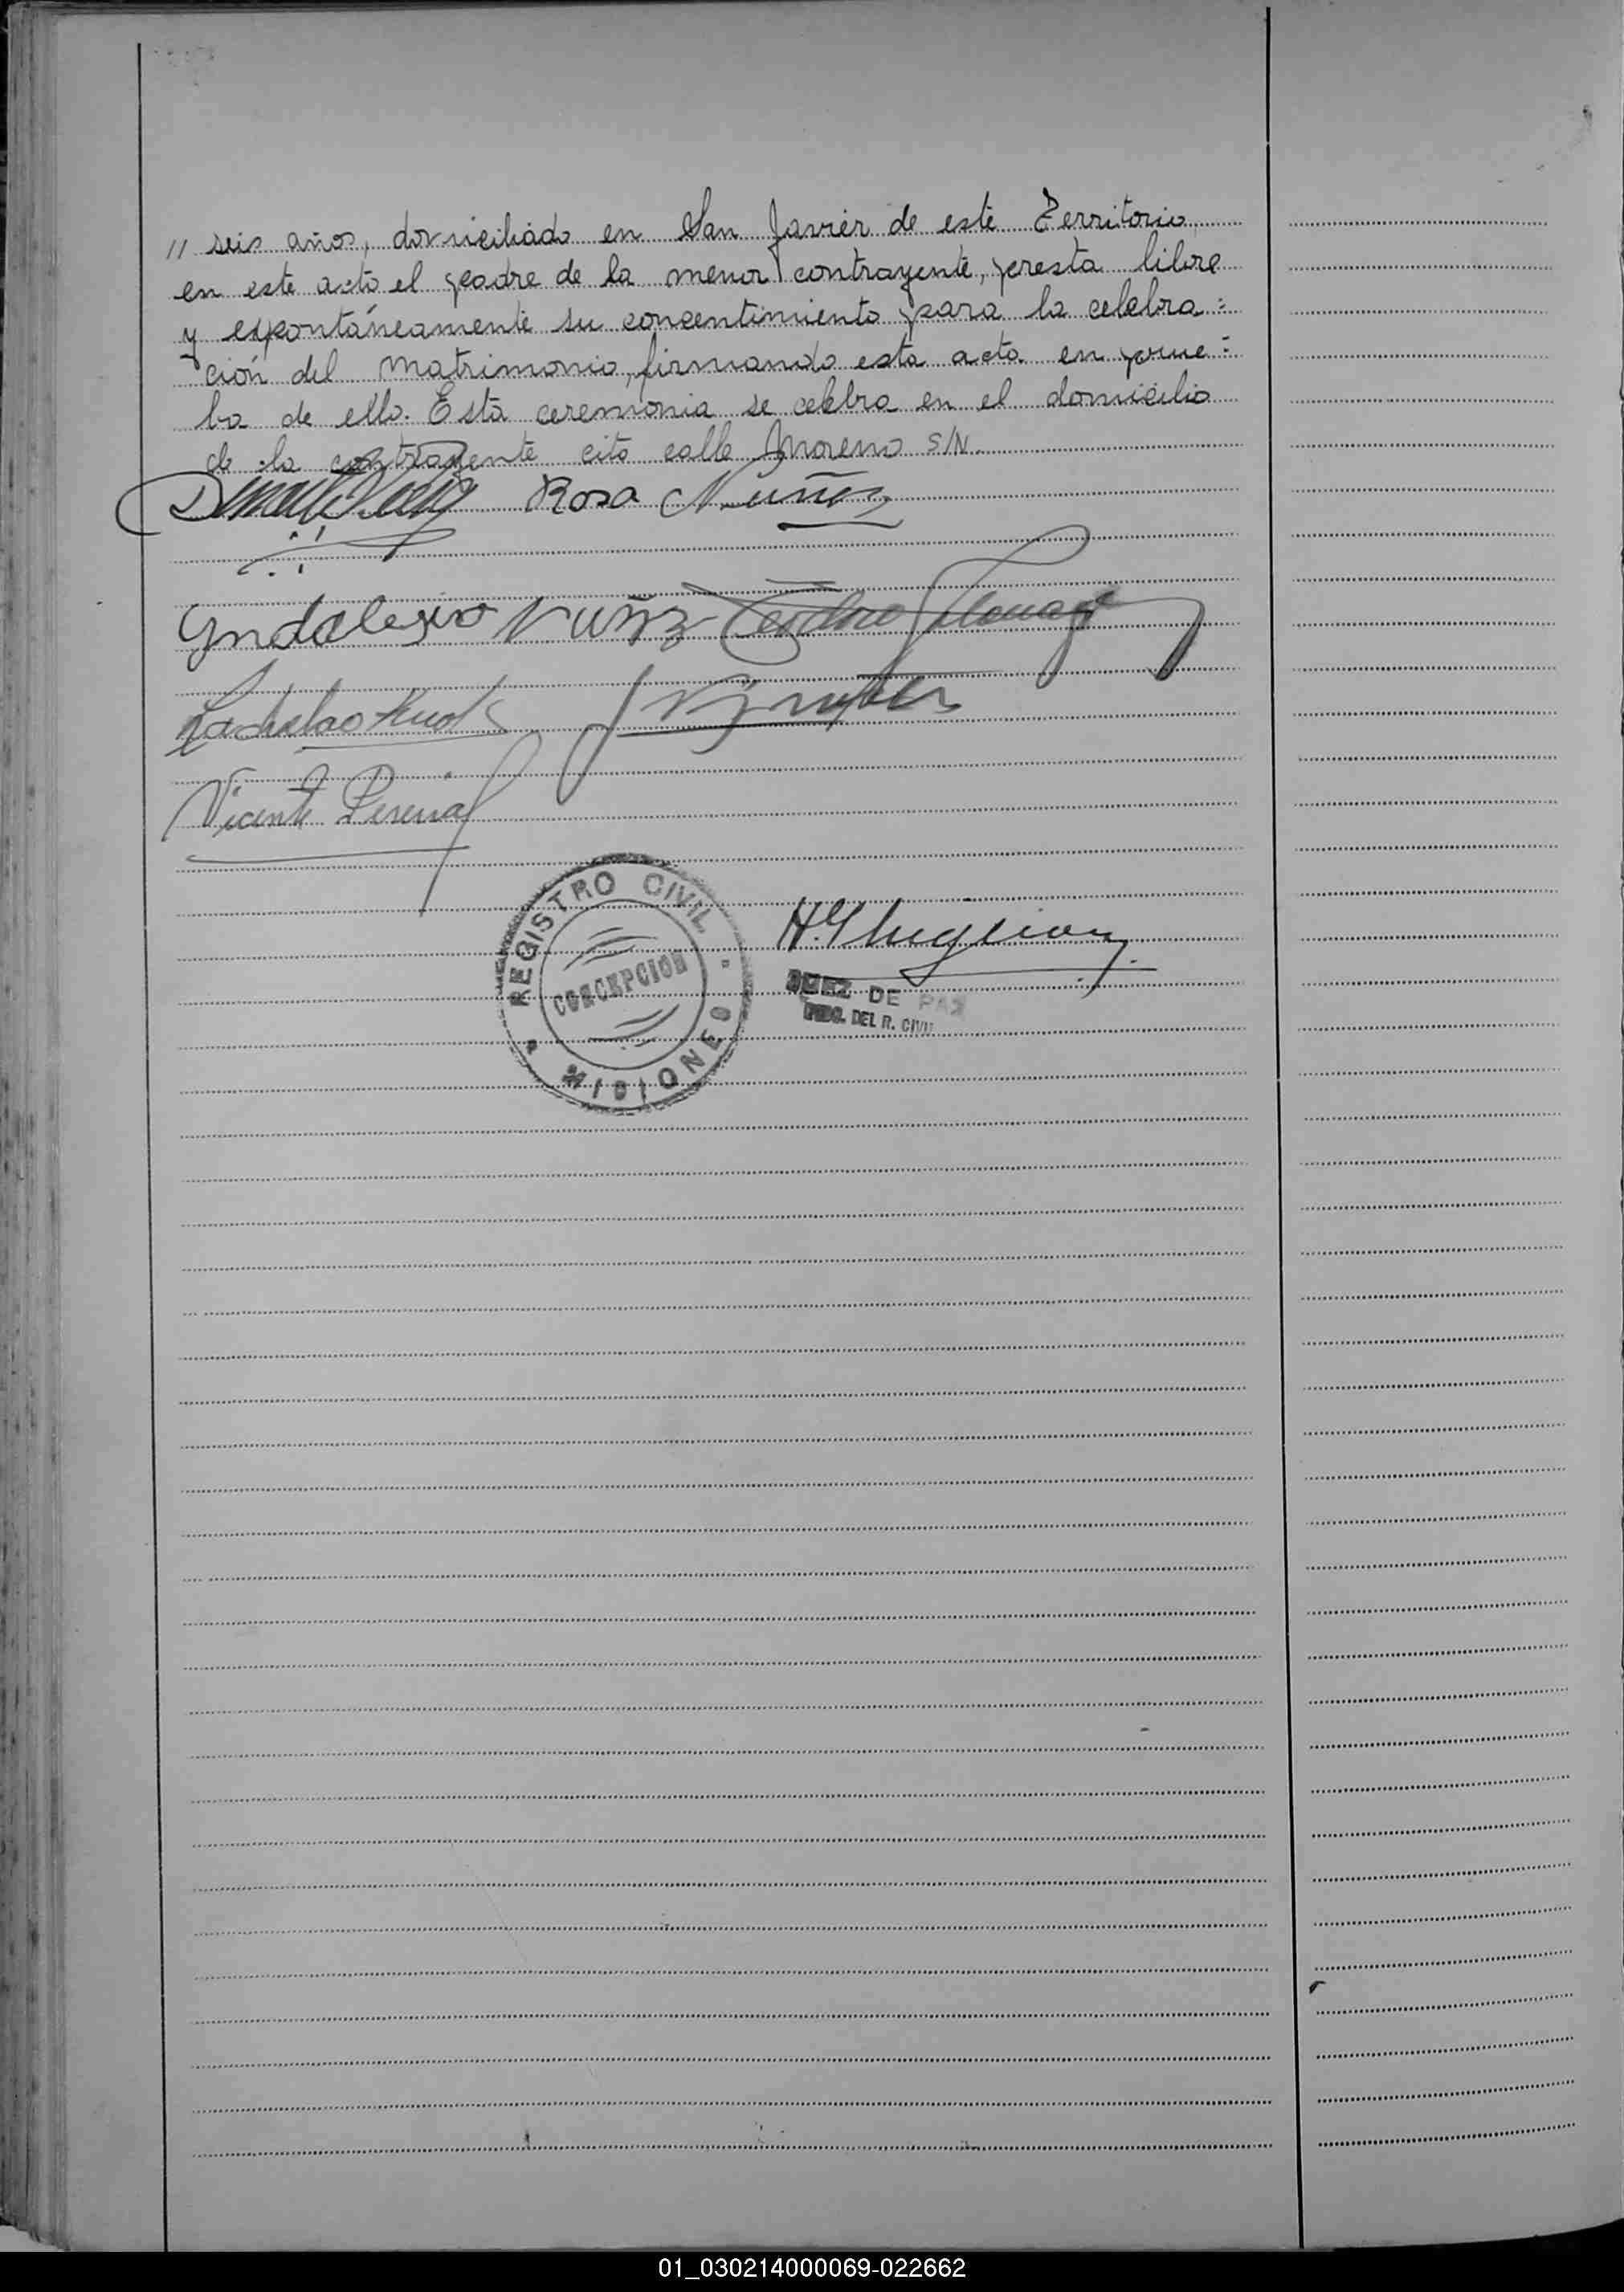 // seis años, domiciliado en San Javier de este Territorio,
en este acto el padre de la menor contrayente, presta libre
y expontáneamente su concentimiento para la celebra=
ción del matrimonio, firmando esta acta en prue=
ba de ello. Esta ceremonia se celebra en el domicilio
de la contrayente cito calle Moreno S/N.
Rosa Nuñez
Yndalesio Nuñz
Ladislao
Vicente
REGISTRO CIVIL
CONCEPCION
MISIONES
H.
JUEZ DE PAZ
ENCG. DEL R. CIVIL
01_030214000069-022662